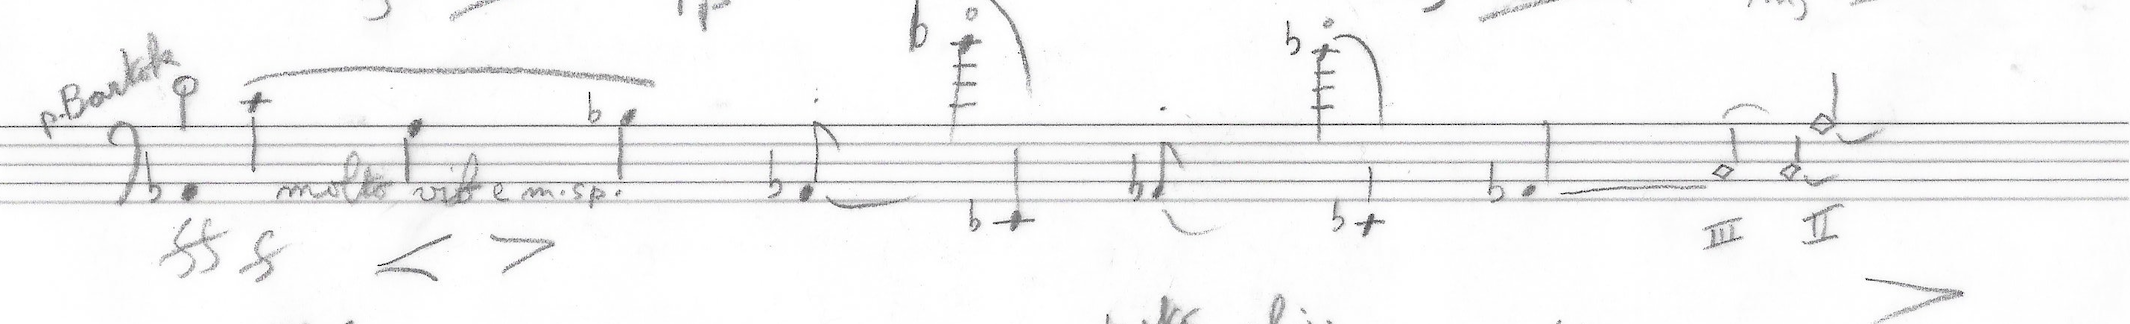 p. Bartók
molto vib e m.sp.
ff f
III II